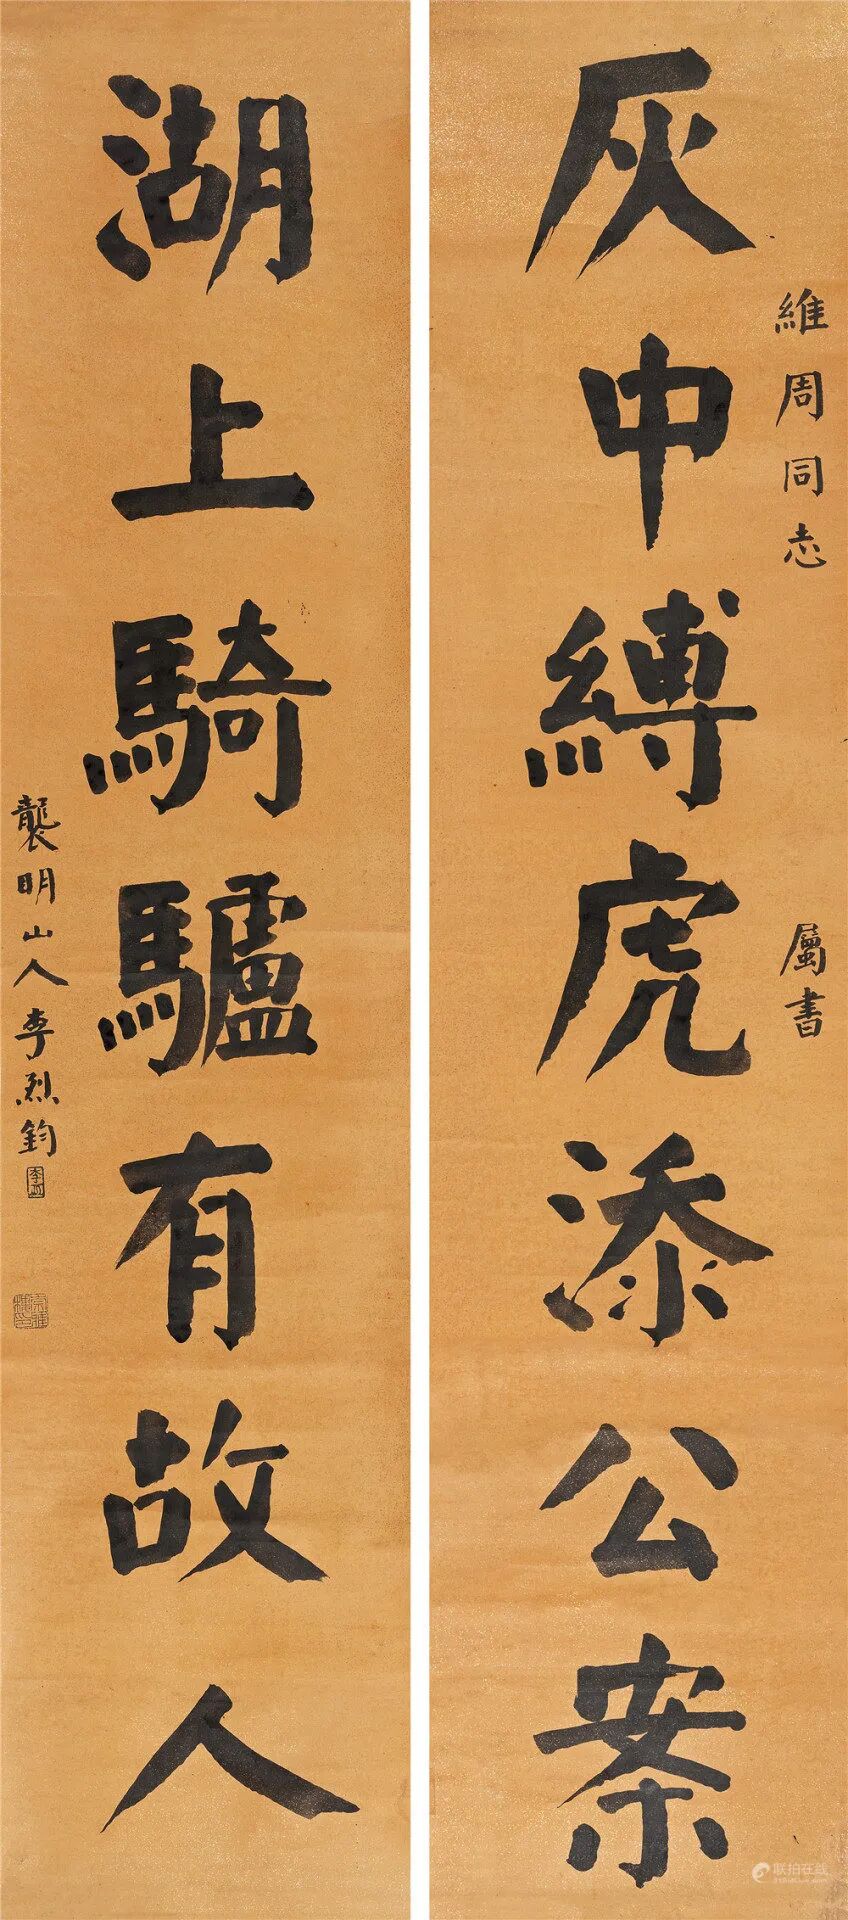 維周同志 屬書
灰中縛虎添公案
湖上騎驢有故人
襲明山人李烈鈞
联拍在线